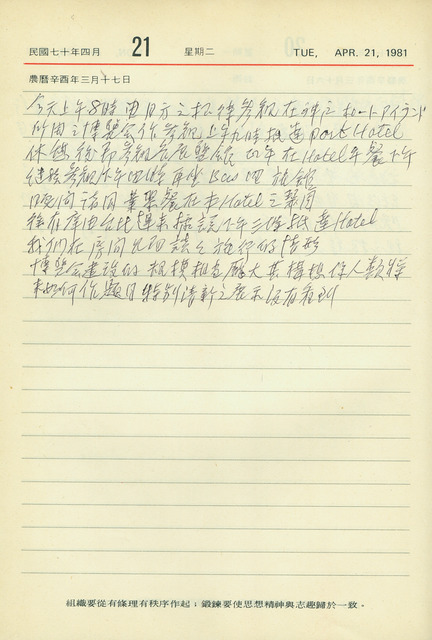 民國七十年四月 21 星期二 TUE, APR. 21, 1981
農曆辛酉年三月十七日
今天上午8時由日方之招待參觀在神戶ポートアイランド
所開之博覽会作參觀上午九時抵達Port Hotel
休憩後即參觀各展覽館 中午在Hotel午餐下午
繼續參觀 下午四時再坐Bus回旅館
晚間 在本Hotel之
由台北 來 下午三 抵達Hotel
我們在房間 談之旅行的情形
博覽会建設的規模相當龐大其構想係人類將
來如何作題目特別清新之展示沒有看到
組織要從有條理有秩序作起；鍛鍊要使思想精神與志趣歸於一致。